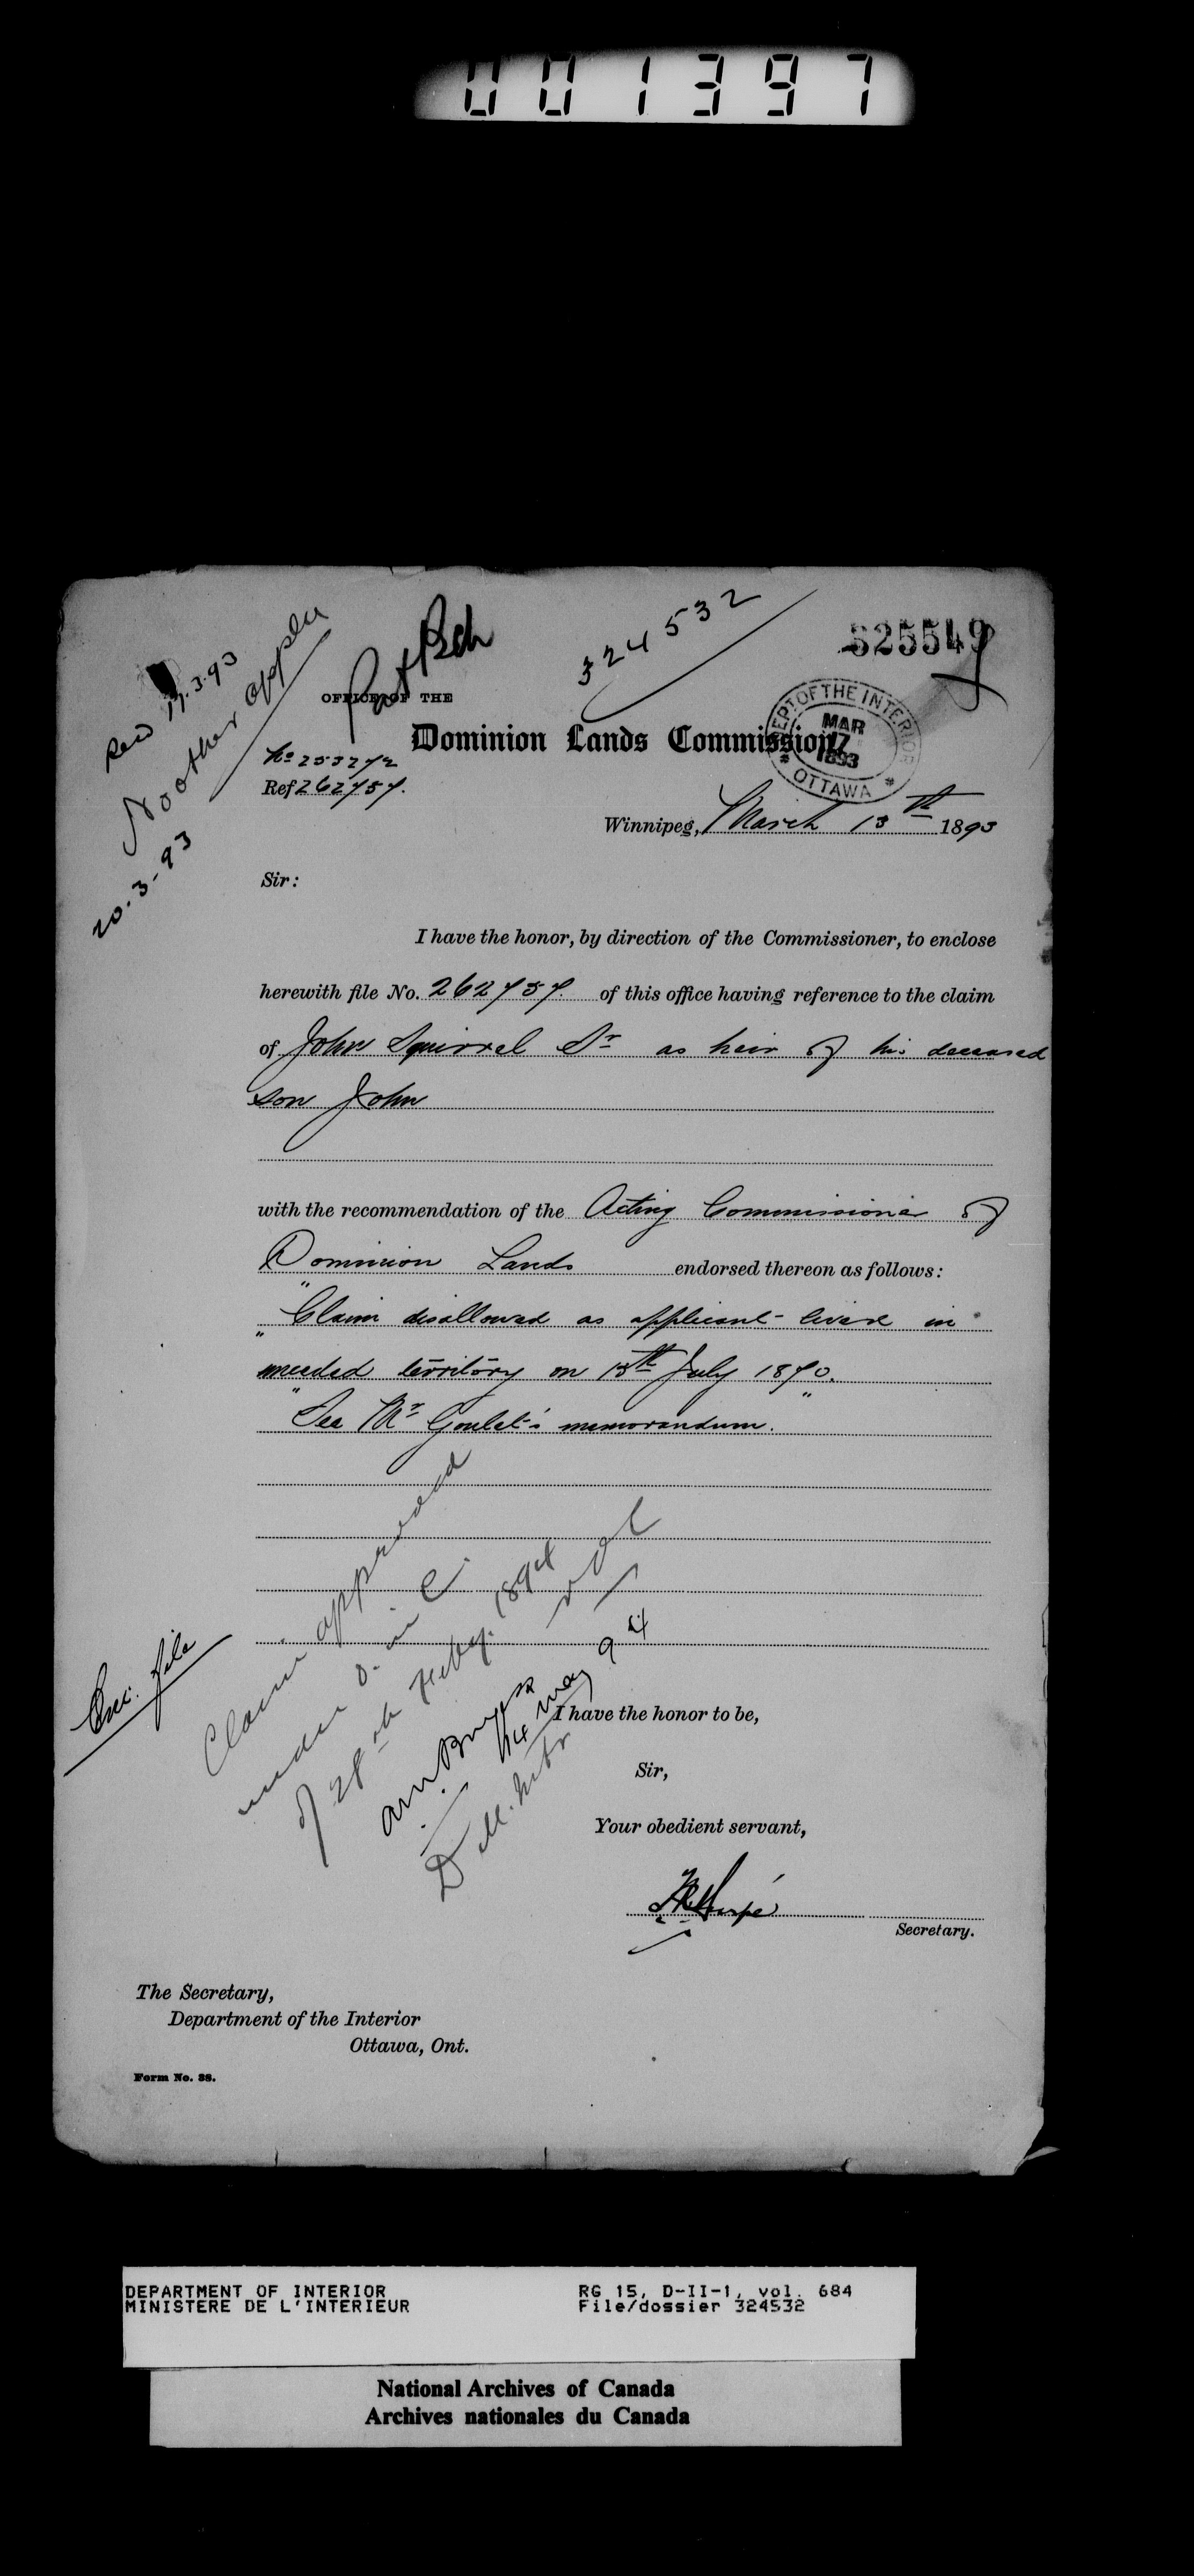 001397
324532
325549
Pat Bch
Rec 17.3.93
No other appln
20.3-93
OFFICE OF THE
Dominion Lands Commission
DEPT OF THE INTERIOR
MAR
17
1893
OTTAWA
No 255272
Ref 262757.
Winnipeg, March 13th 1893
Sir:
I have the honor, by direction of the Commissioner, to enclose
herewith file No. 262757. of this office having reference to the claim
of John Squirrel Sr as heir of his deceased
son John
with the recommendation of the Acting Commissioner of
Dominion Lands endorsed thereon as follows:
"Claim disallowed as applicant lived in
"unceded territory on 15th July 1870.
"See Mr Goulet's memorandum."
Claim approved
under O. in C.
of 28th Feby. 1894
Enc. file
A M Burgess
14 May 94
D.M. Intr
I have the honor to be,
Sir,
Your obedient servant,
Secretary.
The Secretary,
Department of the Interior
Ottawa, Ont.
Form No. 38.
DEPARTMENT OF INTERIOR
MINISTERE DE L'INTERIEUR
RG 15, D-II-1, vol. 684
File/dossier 324532
National Archives of Canada
Archives nationales du Canada